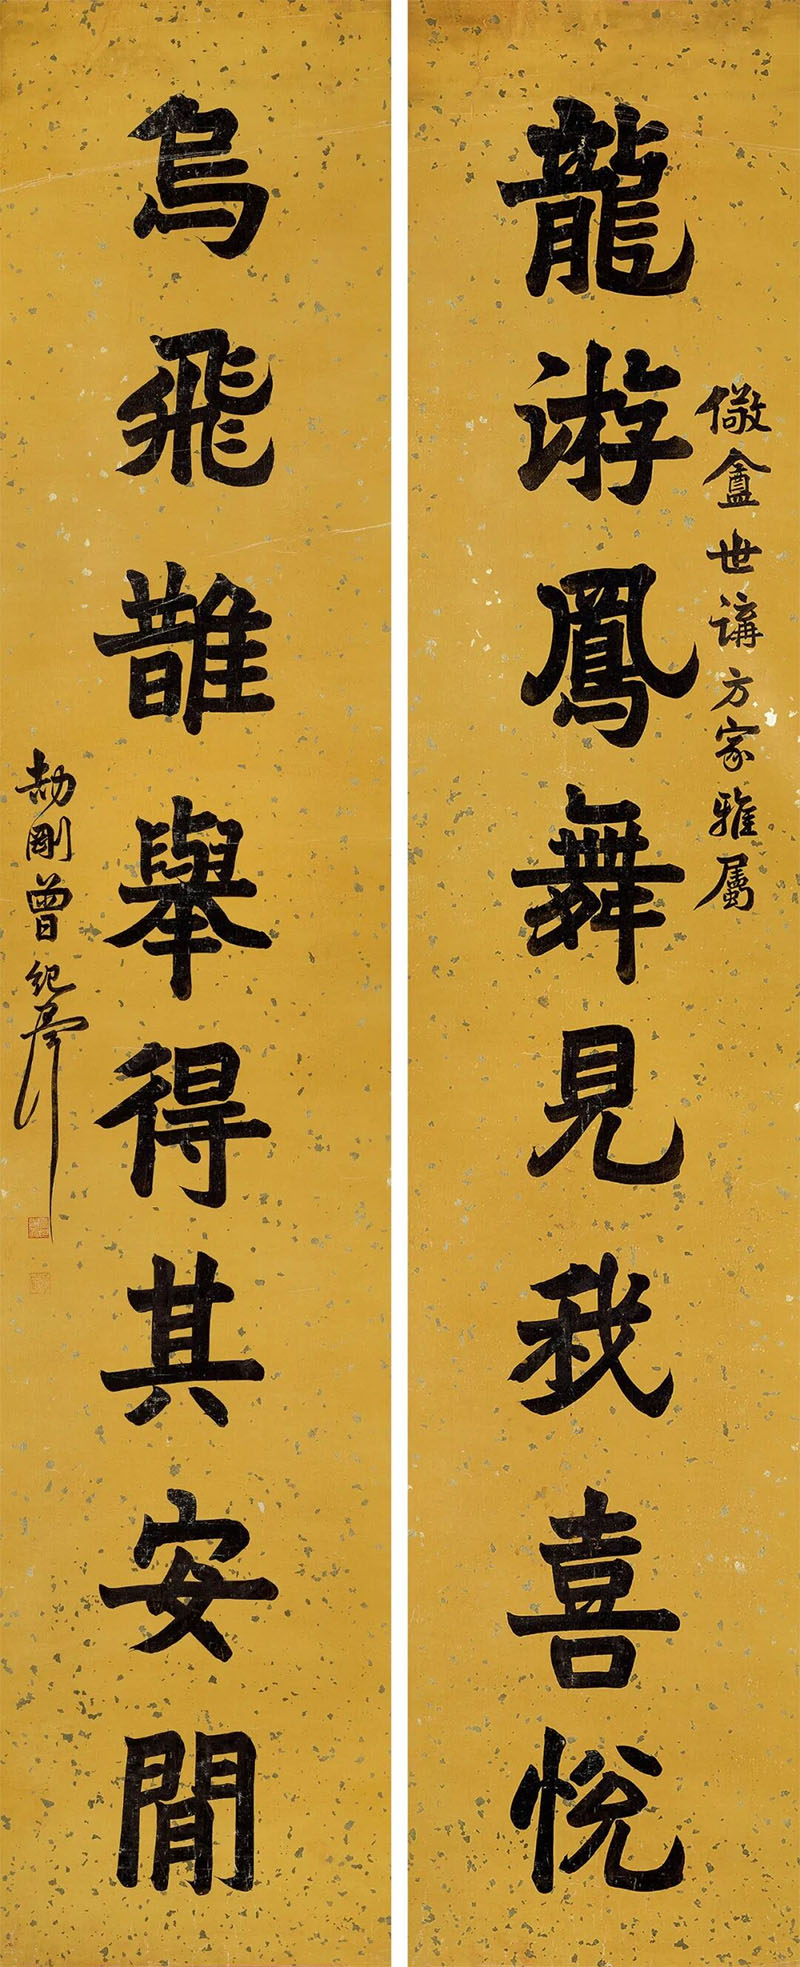 儆盦世講方家雅屬
龍游鳳舞見我喜悅
烏飛鵲舉得其安閒
劼剛曾紀澤